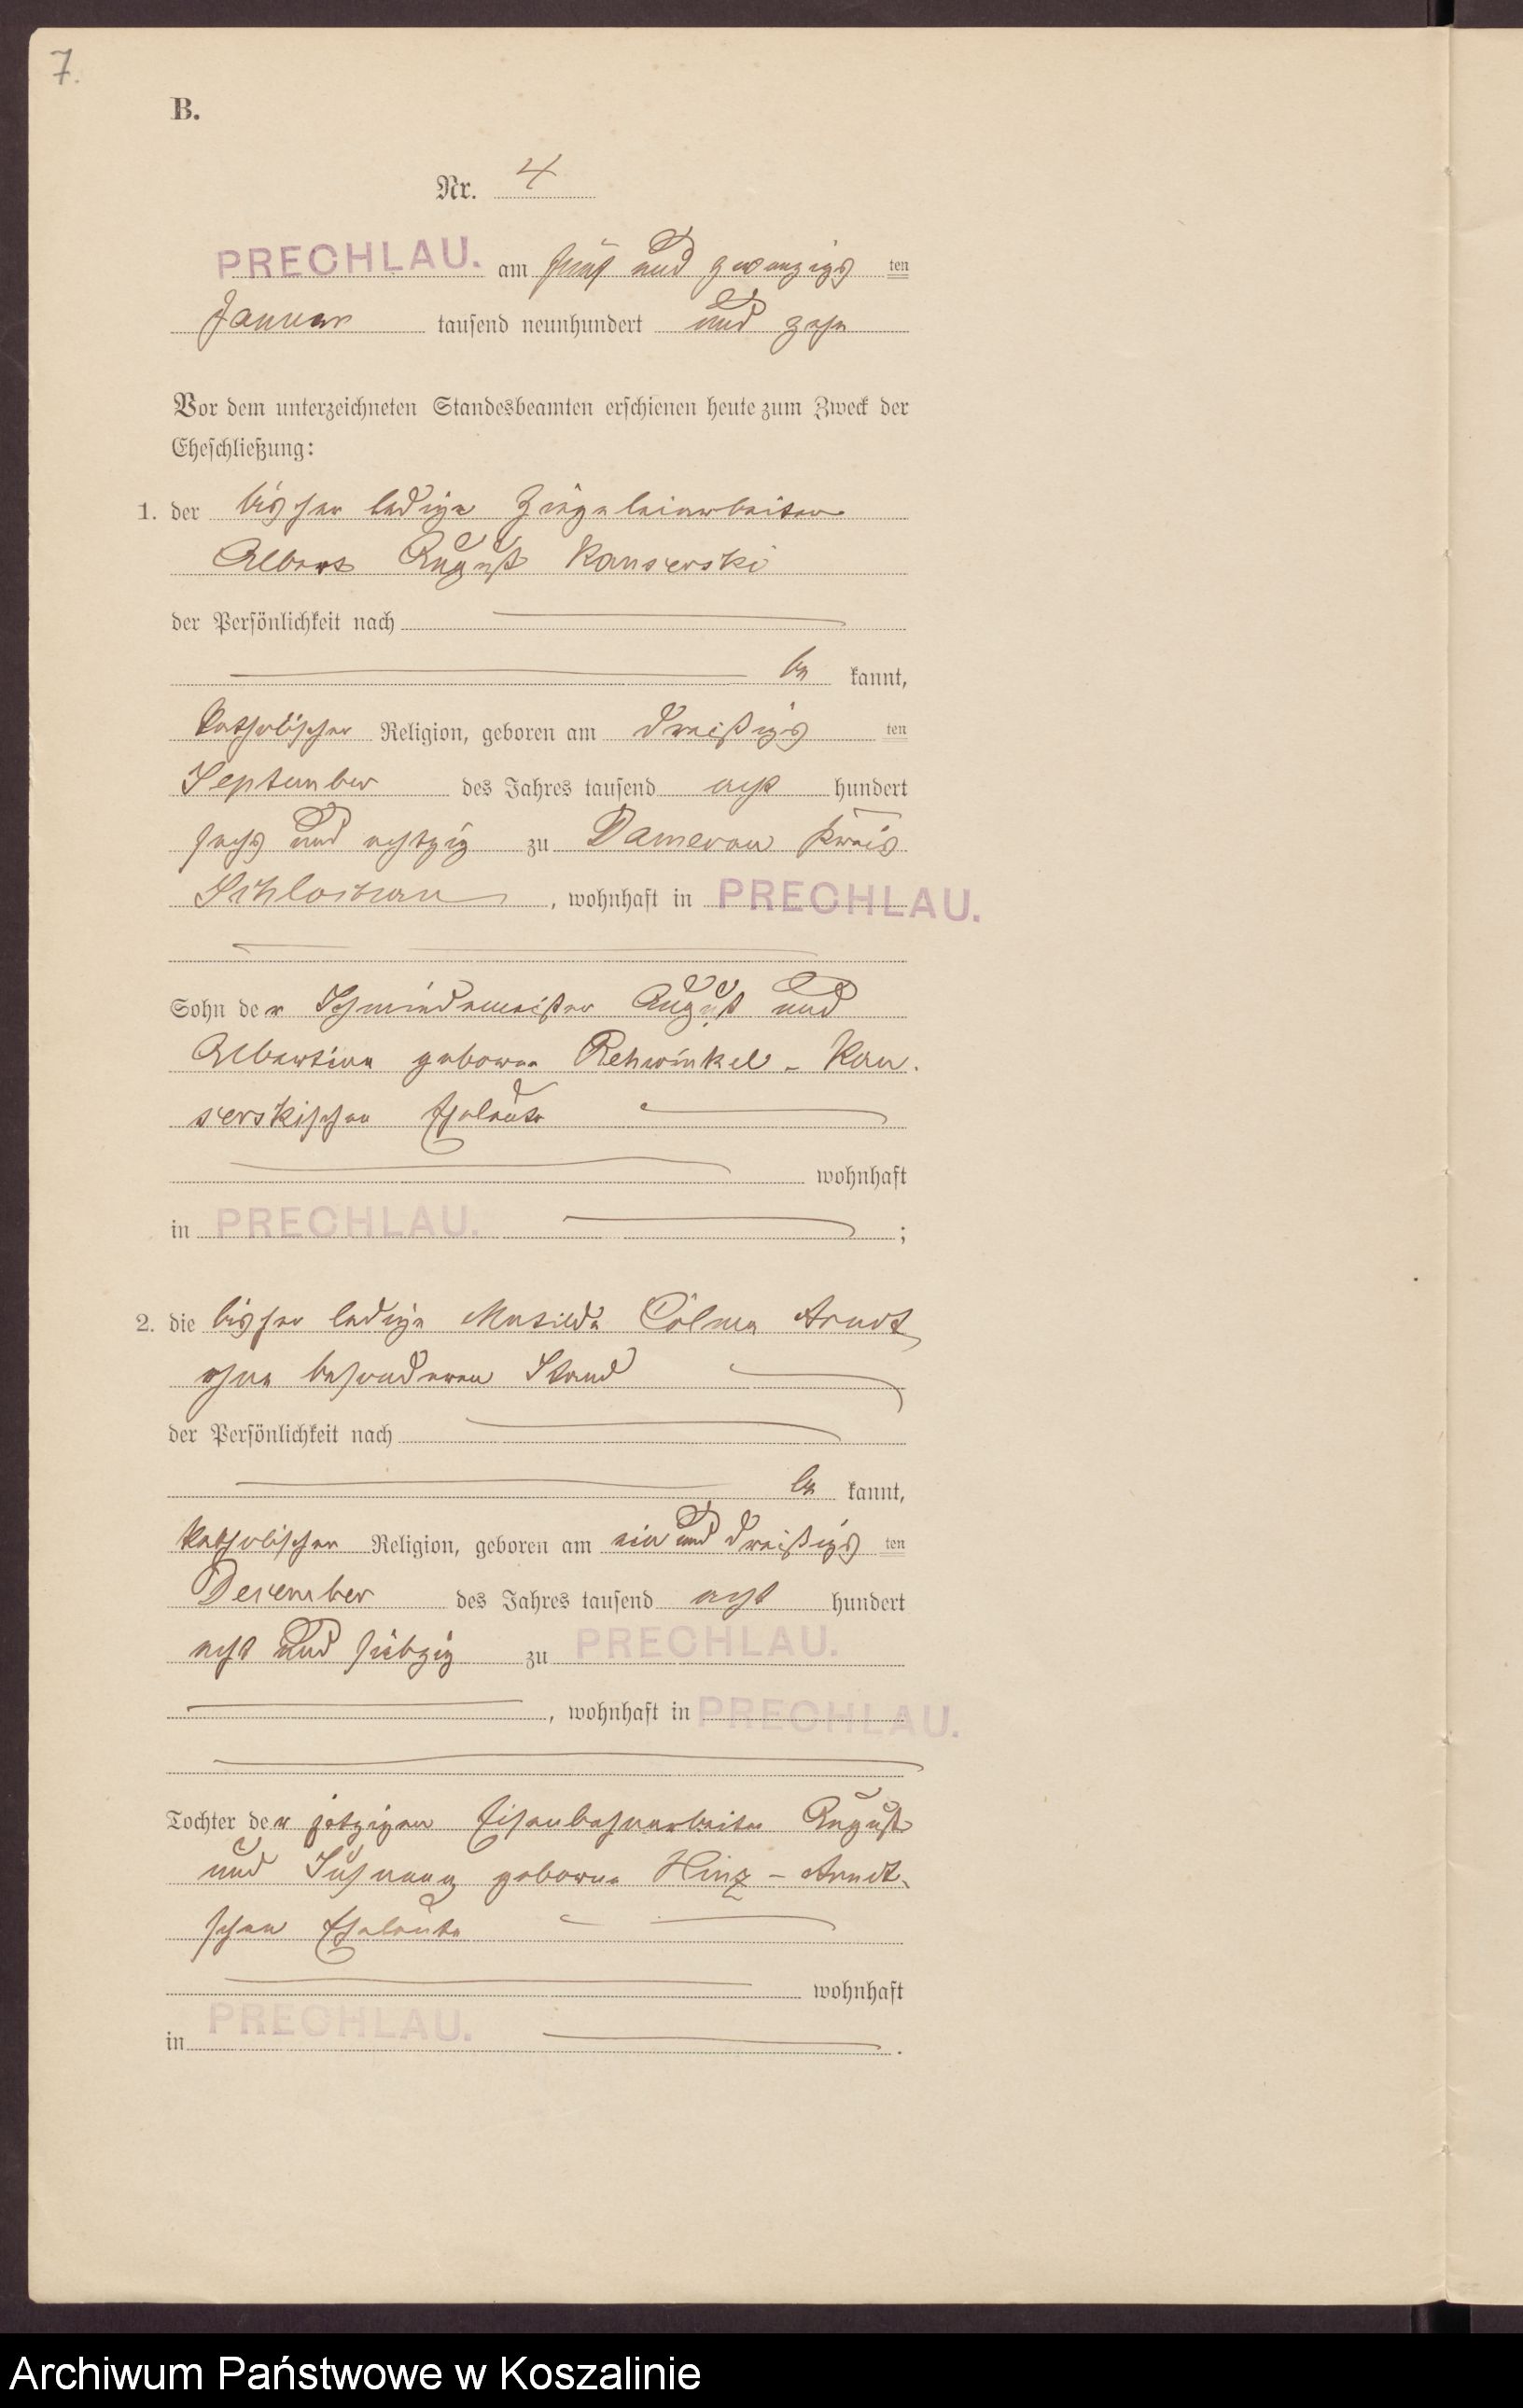 7.
B.
Nr. 4
PRECHLAU. am fünf und zwanzigs ten
Januar tausend neunhundert und zehn
Vor dem unterzeichneten Standesbeamten erschienen heute zum Zweck der
Eheschließung:
1. der bisher ledige Ziegeleiarbeiter
Albert August
der Persönlichkeit nach
be kannt,
katholischer Religion, geboren am dreißigs ten
September des Jahres tausend acht hundert
sechs und achtzig zu Damerau Kreis
Schlochau, wohnhaft in PRECHLAU.
Sohn der Schmiedemeister August und
Albertine geborene Rehwinkel -
Eheleute
wohnhaft
in PRECHLAU. ;
2. die bisher ledige Arndt
ohne besonderen Stand
der Persönlichkeit nach
be kannt,
katholischer Religion, geboren am ein und dreißigs ten
Dezember des Jahres tausend acht hundert
acht und siebzig zu PRECHLAU.
, wohnhaft in PRECHLAU.
Tochter der jetzigen Eisenbahnarbeiter August
und geborene Hinz - Arndt
schen Eheleute
wohnhaft
in PRECHLAU. .
Archiwum Państwowe w Koszalinie